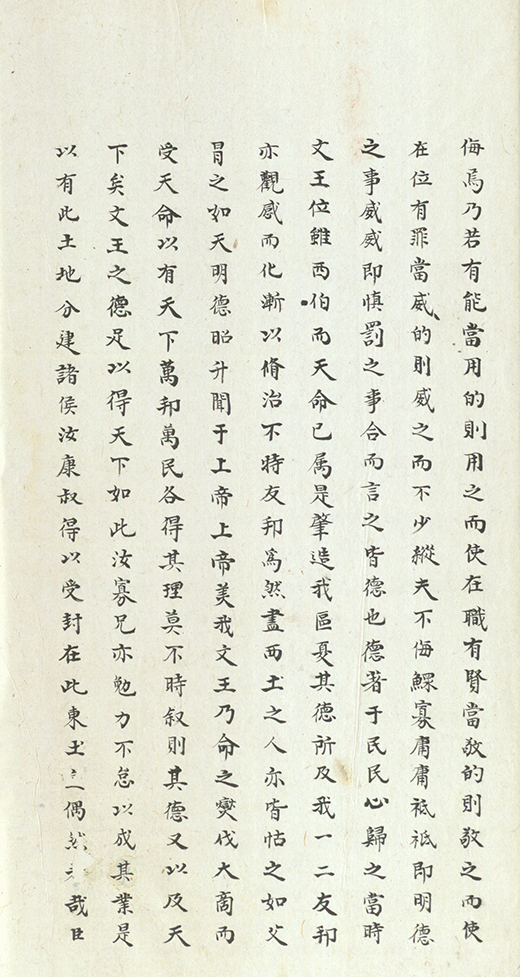 侮焉乃若有能當用的則用之而使在職有賢當敬的則敬之而使
在位有罪當威的則威之而不少縱夫不侮鰥寡庸庸祗祗即明德
之事威威即慎罰之事合而言之皆德也德著于民民心歸之當時
文王位雖西伯而天命已属是肇造我區夏其德所及我一二友邦
亦觀感而化漸以脩治不特友邦爲然盡西土之人亦皆怙之如父
冒之如天明德昭升聞于上帝上帝美我文王乃命之爕伐大商而
受天命以有天下萬邦萬民各得其理莫不時叙則其德又以及天
下矣文王之德足以得天下如此汝寡兄亦勉力不怠以成其業是
以有此土地分建諸侯汝康叔得以受封在此東土偶然哉臣